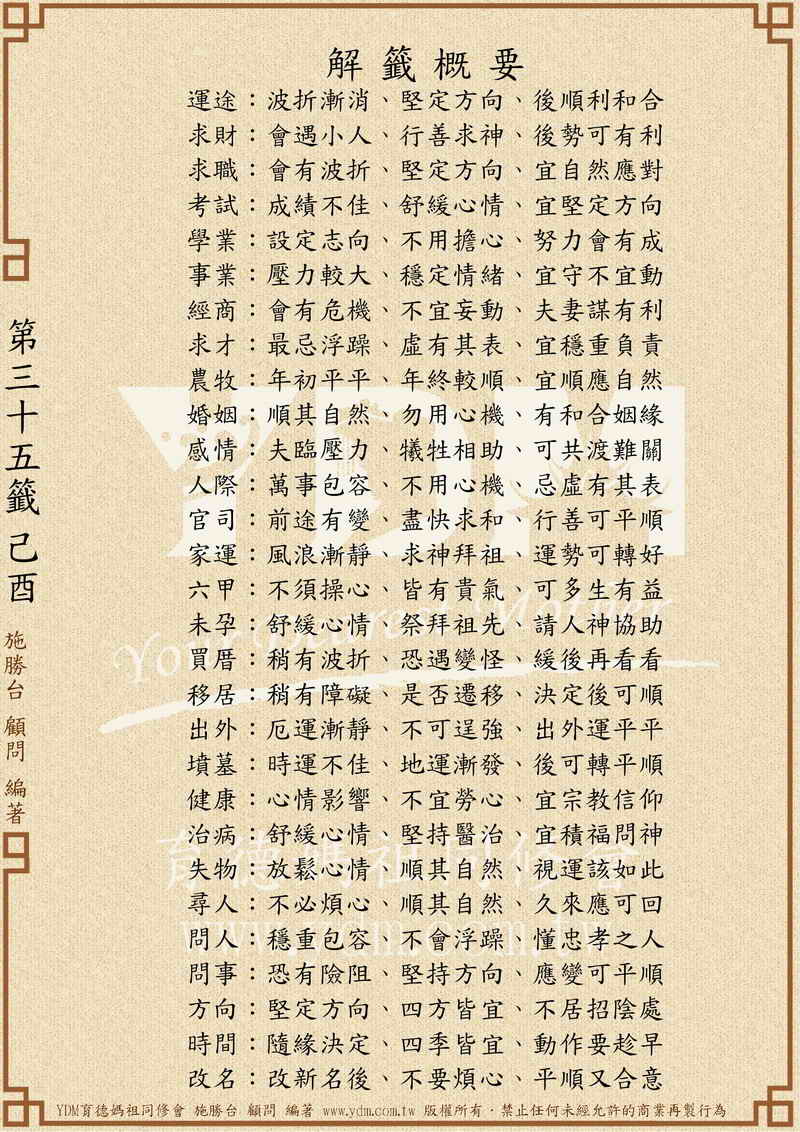 解籤概要
運途：波折漸消、堅定方向、後順利和合
求財：會遇小人、行善求神、後勢可有利
求職：會有波折、堅定方向、宜自然應對
考試：成績不佳、舒緩心情、宜堅定方向
學業：設定志向、不用擔心、努力會有成
事業：壓力較大、穩定情緒、宜守不宜動
經商：會有危機、不宜妄動、夫妻謀有利
求才：最忌浮躁、虛有其表、宜穩重負責
農牧：年初平平、年終較順、宜順應自然
婚姻：順其自然、勿用心機、有和合姻緣
感情：夫臨壓力、犧牲相助、可共渡難關
人際：萬事包容、不用心機、忌虛有其表
官司：前途有變、盡快求和、行善可平順
家運：風浪漸靜、求神拜祖、運勢可轉好
六甲：不須操心、皆有貴氣、可多生有益
未孕：舒緩心情、祭拜祖先、請人神協助
買厝：稍有波折、恐遇變怪、緩後再看看
移居：稍有障礙、是否遷移、決定後可順
出外：厄運漸靜、不可逞強、出外運平平
墳墓：時運不佳、地運漸發、後可轉平順
健康：心情影響、不宜勞心、宜宗教信仰
治病：舒緩心情、堅持醫治、宜積福問神
失物：放鬆心情、順其自然、視運該如此
尋人：不必煩心、順其自然、久來應可回
問人：穩重包容、不會浮躁、懂忠孝之人
問事：恐有險阻、堅持方向、應變可平順
方向：堅定方向、四方皆宜、不居招陰處
時間：隨緣決定、四季皆宜、動作要趁早
改名：改新名後、不要煩心、平順又合意
第三十五籤 己酉
施勝台 顧問 編著
YDM
Your Dearest Mother
育德媽祖同修會
www.ydm.com.tw
YDM育德媽祖同修會 施勝台 顧問 編著 www.ydm.com.tw 版權所有‧禁止任何未經允許的商業再製行為